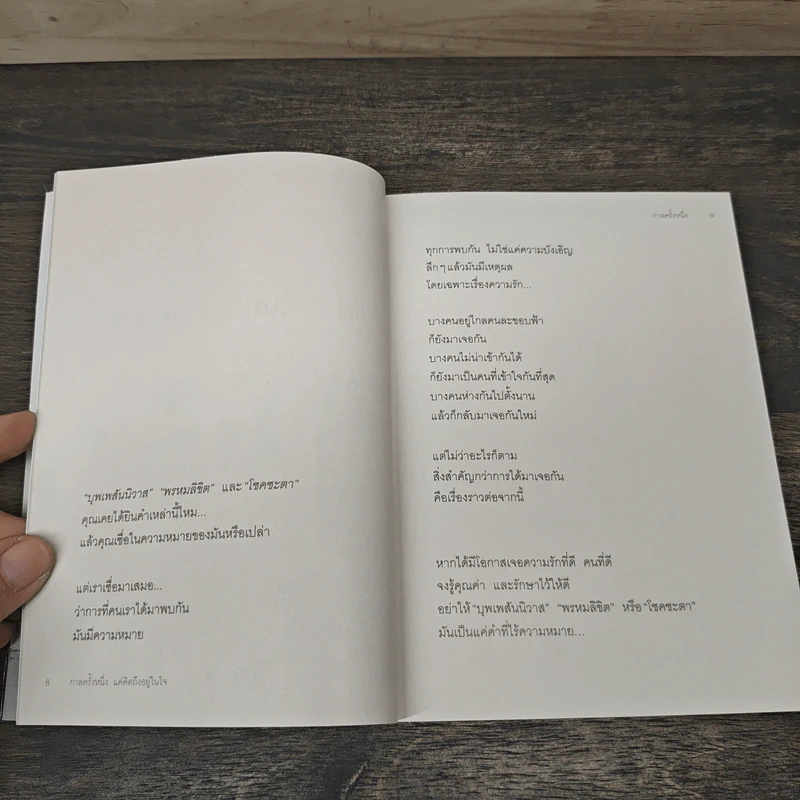 "บุพเพสันนิวาส" "พรหมลิขิต" และ "โชคชะตา"
คุณเคยได้ยินคำเหล่านี้ไหม...
แล้วคุณเชื่อในความหมายของมันหรือเปล่า
แต่เราเชื่อมาเสมอ...
ว่าการที่คนเราได้มาพบกัน
มันมีความหมาย
8 กาลครั้งหนึ่ง แค่คิดถึงอยู่ในใจ
กาลครั้งหนึ่ง 9
ทุกการพบกัน ไม่ใช่แค่ความบังเอิญ
ลึกๆ แล้วมันมีเหตุผล
โดยเฉพาะเรื่องความรัก...
บางคนอยู่ไกลคนละขอบฟ้า
ก็ยังมาเจอกัน
บางคนไม่น่าเข้ากันได้
ก็ยังมาเป็นคนที่เข้าใจกันที่สุด
บางคนห่างกันไปตั้งนาน
แล้วก็กลับมาเจอกันใหม่
แต่ไม่ว่าอะไรก็ตาม
สิ่งสำคัญกว่าการได้มาเจอกัน
คือเรื่องราวต่อจากนี้
หากได้มีโอกาสเจอความรักที่ดี คนที่ดี
จงรู้คุณค่า และรักษาไว้ให้ดี
อย่าให้ "บุพเพสันนิวาส" "พรหมลิขิต" หรือ "โชคชะตา"
มันเป็นแค่คำที่ไร้ความหมาย...